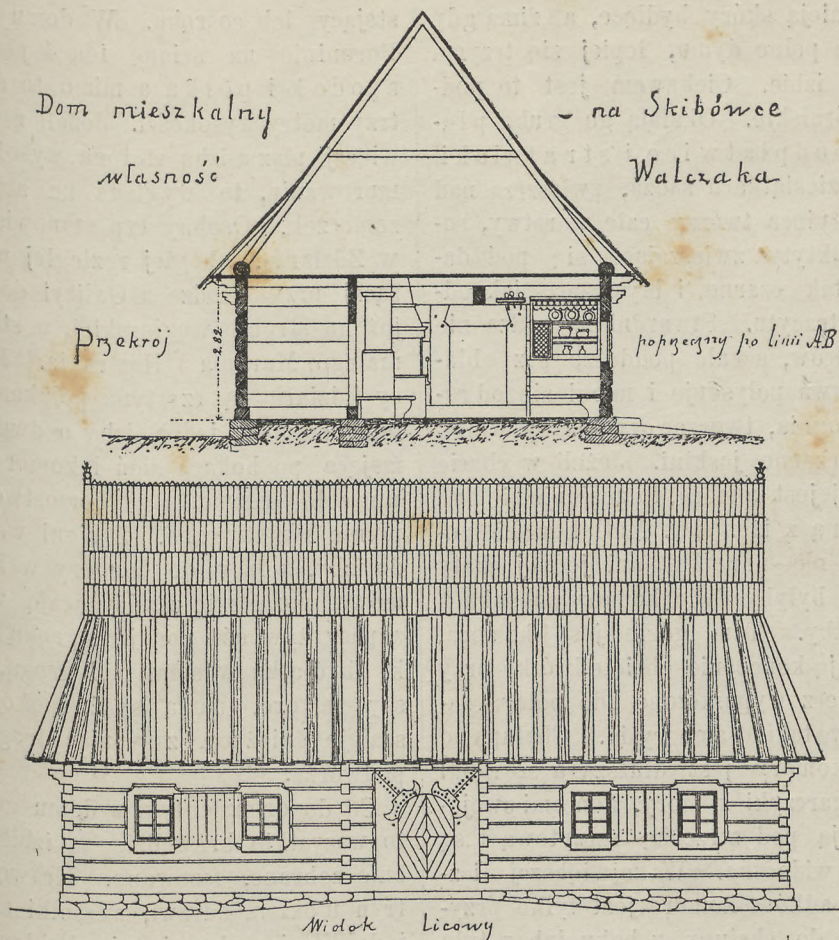 Dom mieszkalny na Skibówce
własność Walczaka
Przekrój poprzeczny po linii AB
2.82
Widok Licowy